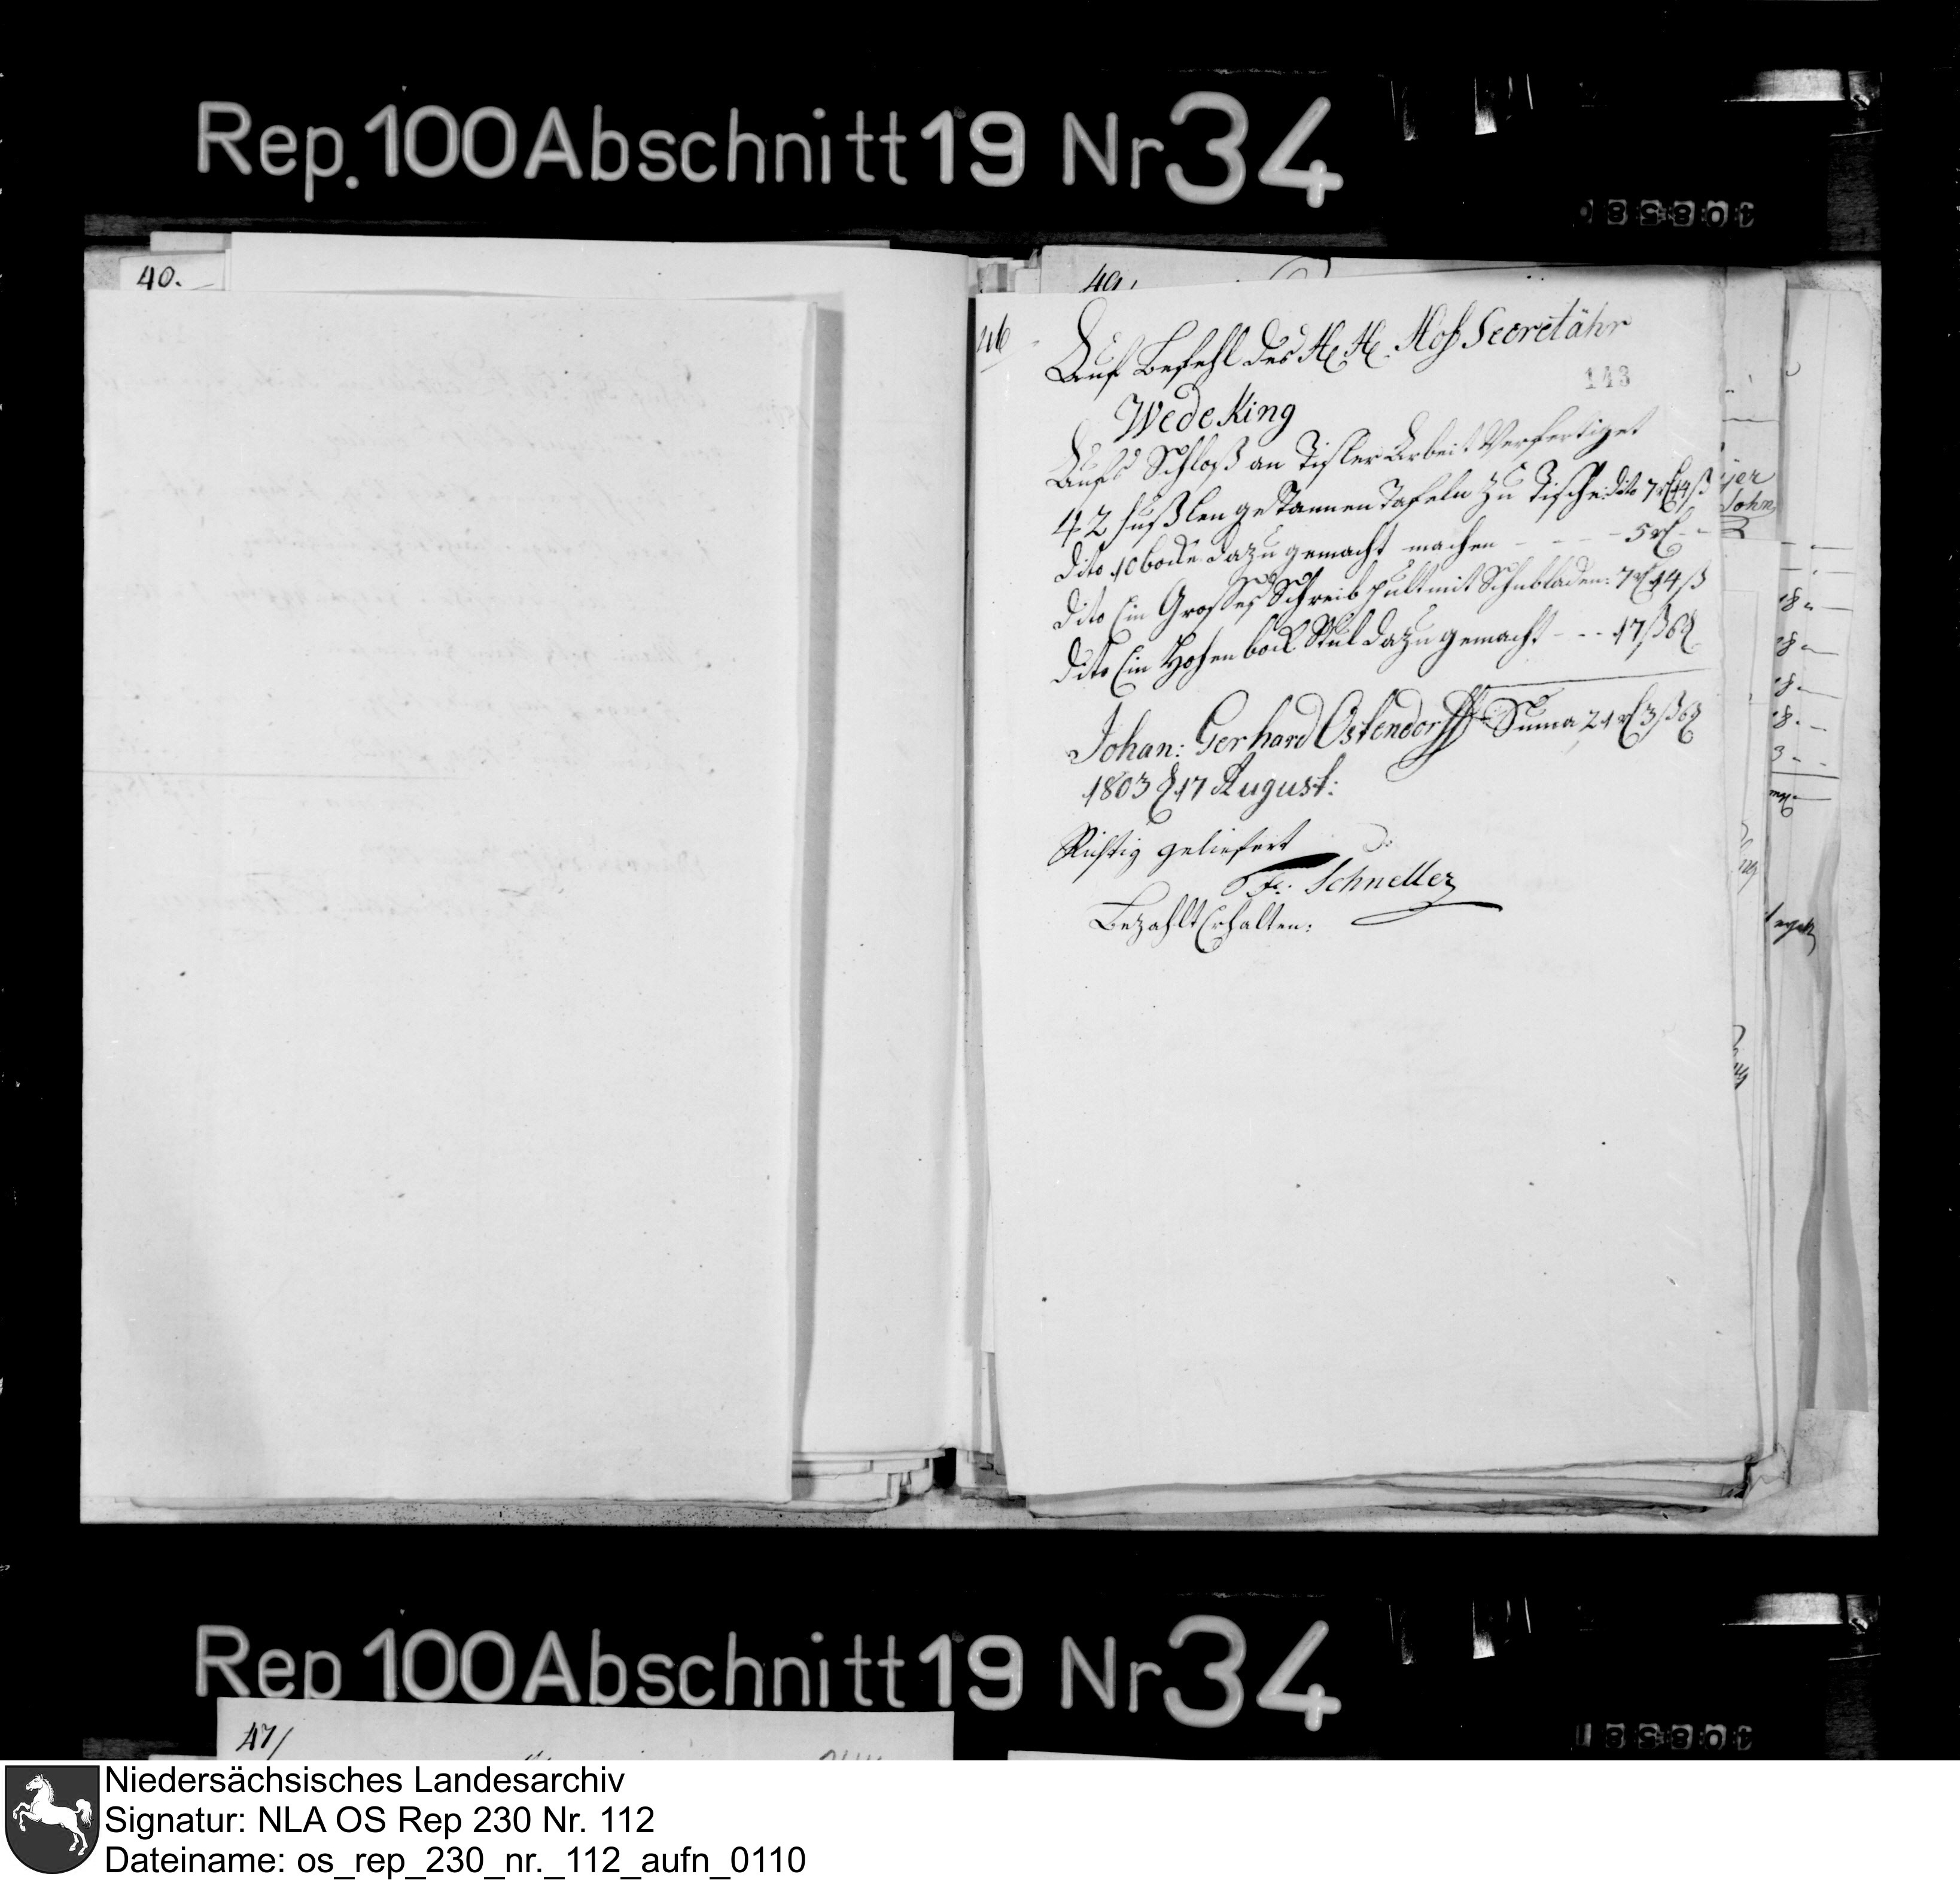 Rep. 100 Abschnitt 19 Nr 34
40.
49.
46
Auf Befehl des H. H. Hoff Secretähr
143
Wedeking
Aufs Schloß an Tisler Arbeit Verfertiget
42 fuß lenge Tannen Tafeln zu Tische: dito 7 rl 14 ß
dito 10 böcke dazu gemacht machen - - - - 5 rl - -
dito Ein Grosses Schreib pult mit Schubladen: 7 rl 14 ß
dito Ein Hohen bock Stul dazu gemacht - - - 17 ß 6 d
Johan: Gerhard Ostendorff Suma 21 rl 3 ß 6 d
1803 d 17 August:
Richtig geliefert
Fr: Schneller
Bezahlt Erhalten:
Rep 100 Abschnitt 19 Nr 34
47/
Niedersächsisches Landesarchiv
Signatur: NLA OS Rep 230 Nr. 112
Dateiname: os_rep_230_nr._112_aufn_0110